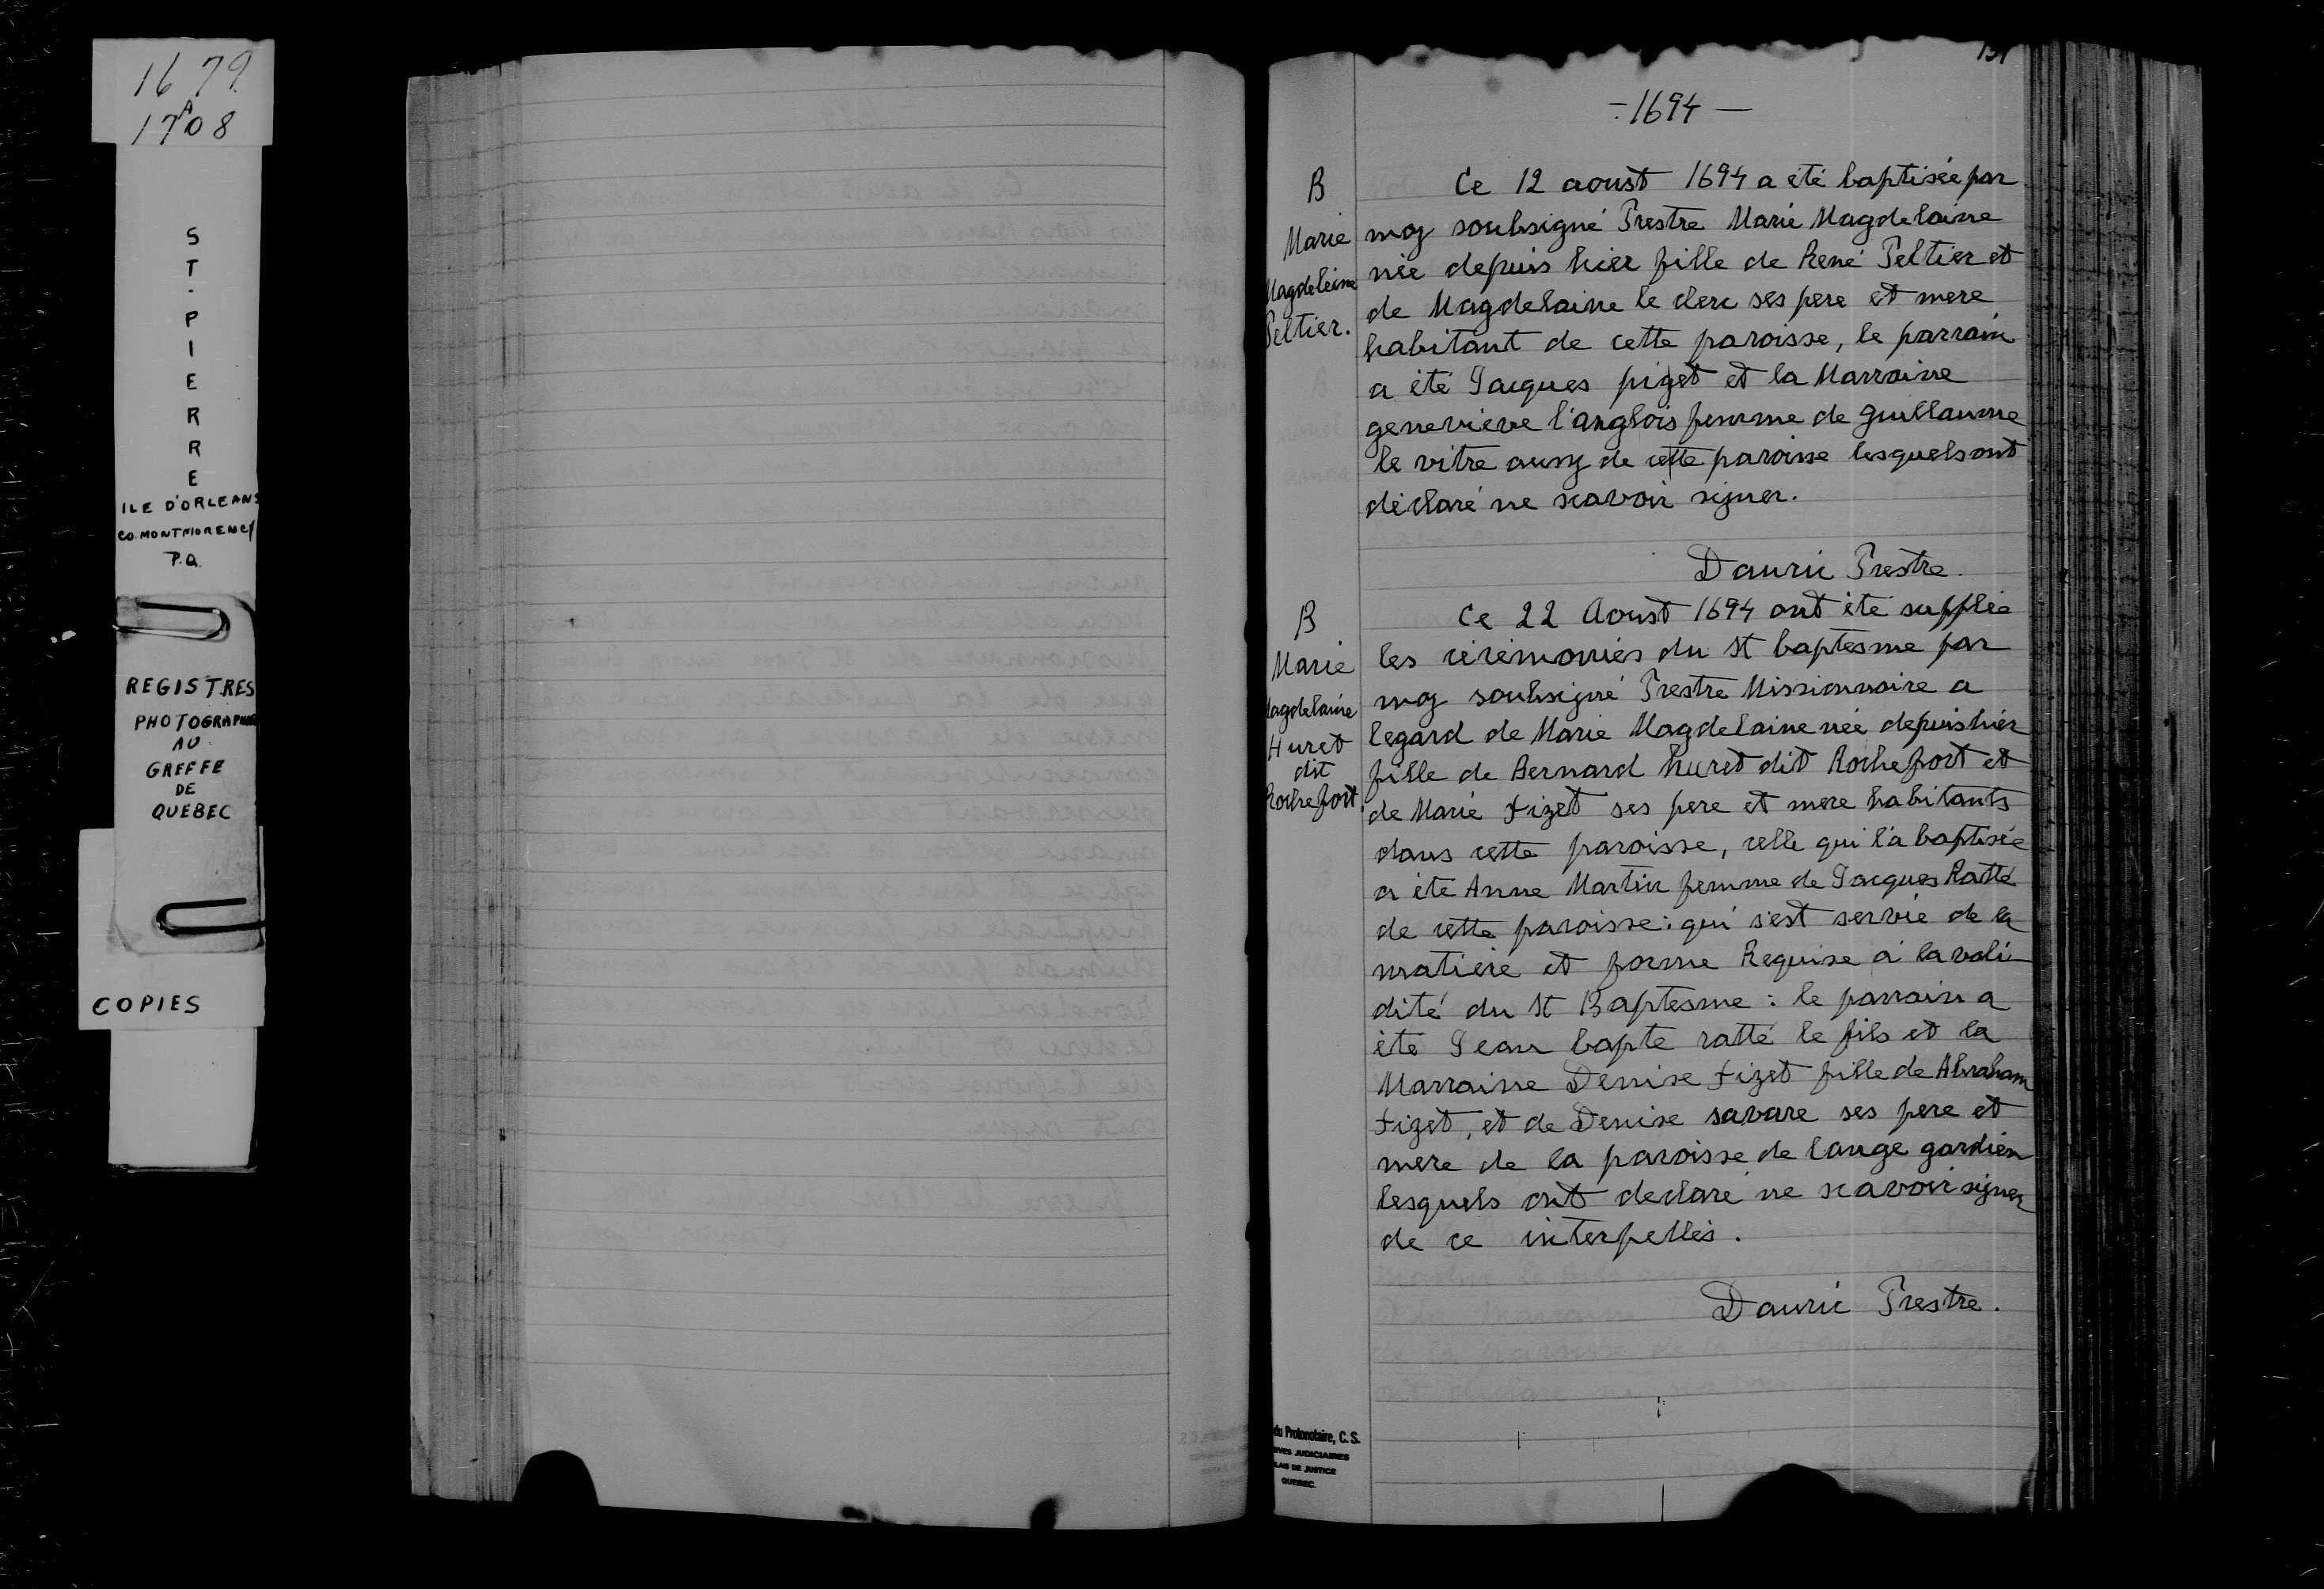 1679
A
1708
ST-PIERRE
ILE D'ORLEANS
CO. MONTMORENCY
P.Q.
REGISTRES
PHOTOGRAPHIES
AU
GREFFE
DE
QUEBEC
COPIES
- 1694 -
B
Marie
Magdeleine
Peltier.
Ce 12 aoust 1694 a été baptisée par
moy soubsigné Prestre Marie Magdelaine
née depuis hier fille de René Peltier et
de Magdelaine le clerc ses pere et mere
habitant de cette paroisse, le parrain
a été Jacques pizet et la Marraine
genevieve l'anglois femme de guillaume
le vitre aussy de cette paroisse lesquels ont
déclaré ne scavoir signer.
Dauric Prestre.
B
Marie
Magdelaine
Huret
dit
Rochefort.
Ce 22 Aoust 1694 ont été supplée
les cérémonies du St baptesme par
moy soubsigné Prestre Missionnaire a
legard de Marie Magdelaine née depuis hier
fille de Bernard huret dit Rochefort et
de Marie fizet ses pere et mere habitants
dans cette paroisse, celle qui l'a baptisée
a été Anne Martin femme de Jacques Ratté
de cette paroisse: qui s'est servie de la
matiere et forme Requise à la vali-
dité du St Baptesme : le parrain a
été Jean bapte ratté le fils et la
Marraine Denise fizet fille de Abraham
fizet, et de Denise savare ses pere et
mere de la paroisse de lange gardien
lesquels ont declaré ne scavoir signer
de ce interpellés.
Dauric Prestre.
du Protonotaire, C. S.
IVES JUDICIAIRES
LAIS DE JUSTICE
QUEBEC